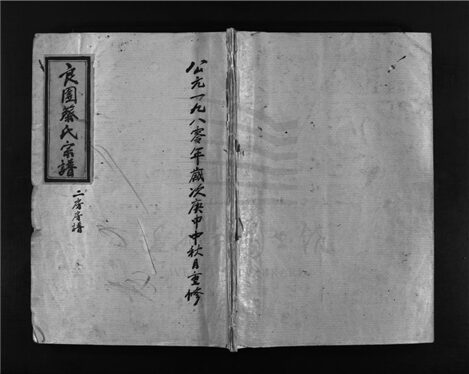 公元一九八零年歲次庚申中秋月重修
良園蔡氏宗譜
二房房譜